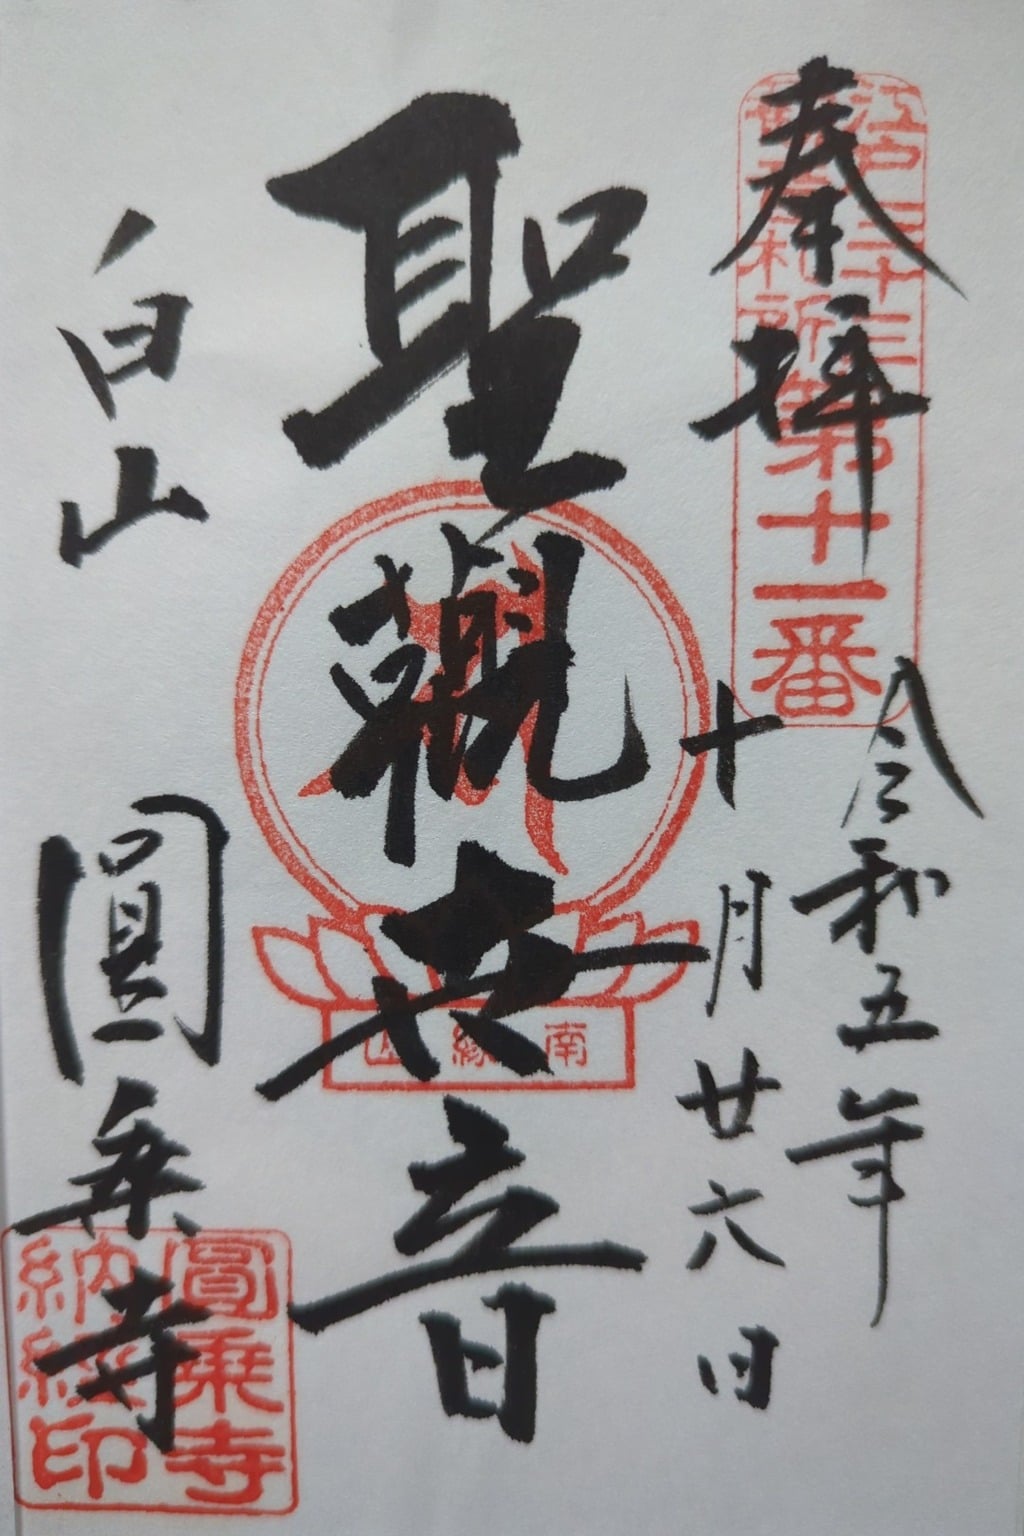 奉拝
江戸三十三
観音札所第十一番
令和五年
十月廿六日
聖観世音
南縁山
白山
圓乗寺
圓乗寺
納経印